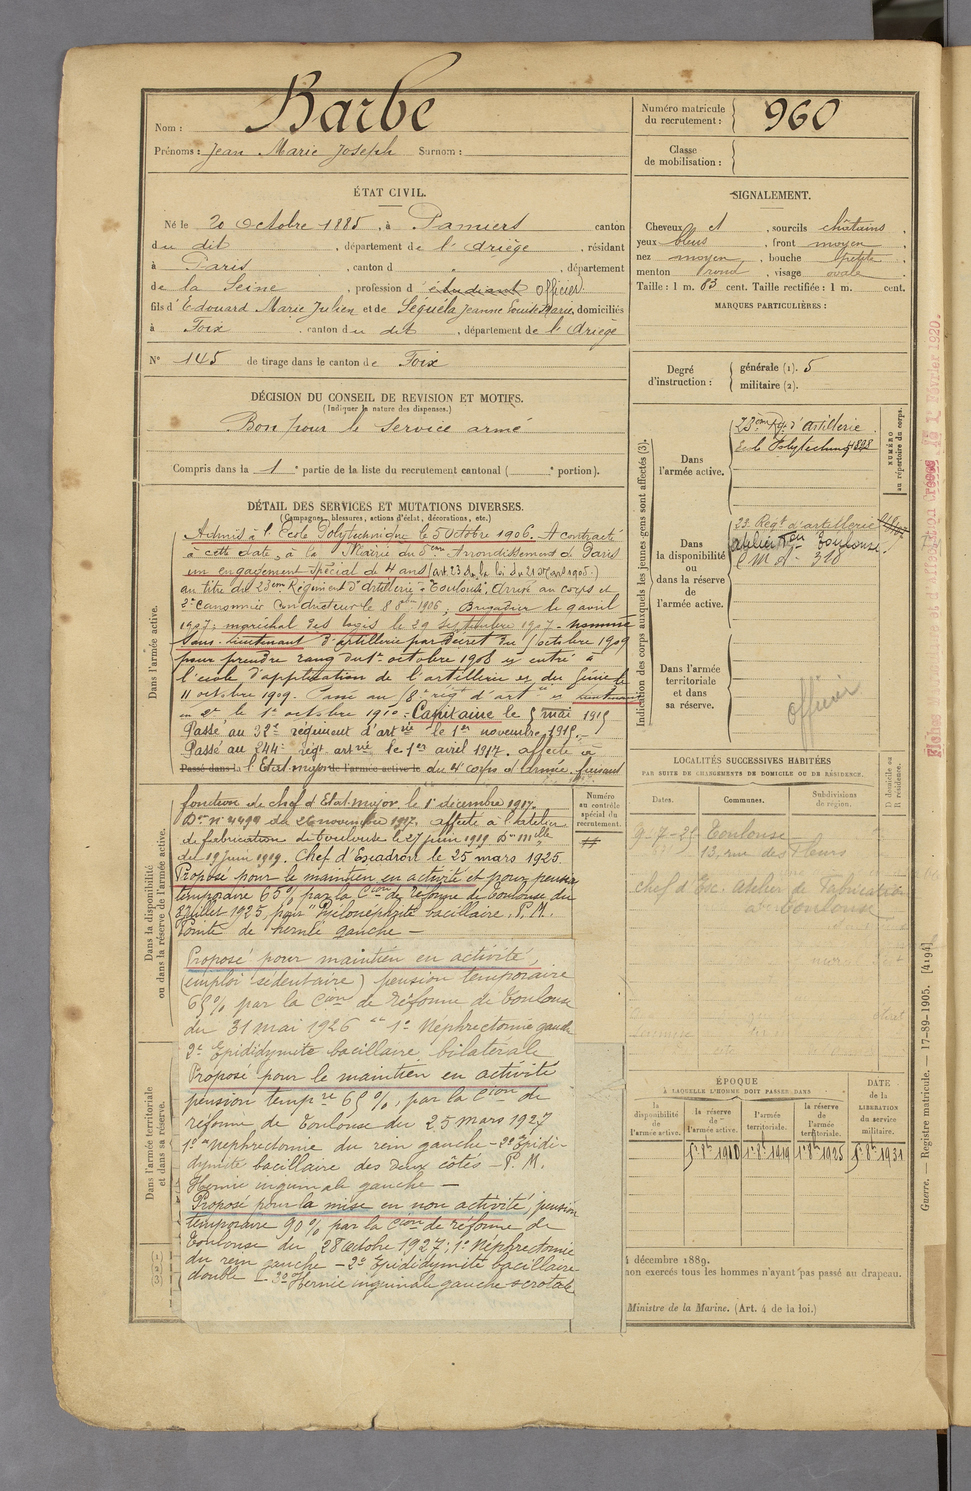 Nom : Barbe
Prénoms : Jean Marie Joseph Surnom :
ÉTAT CIVIL.
Né le 20 Octobre 1885, à Pamiers canton
du dit, département de l'Ariège, résidant
à Paris, canton d , département
de la Seine, profession d'étudiant officier
fils d'Edouard Marie Julien et de Séguéla Jeanne Louise Marie, domiciliés
à Foix, canton du dit, département de l'Ariège
N° 145 de tirage dans le canton de Foix
DÉCISION DU CONSEIL DE REVISION ET MOTIFS.
(Indiquer la nature des dispenses.)
Bon pour le service armé
Compris dans la 1e partie de la liste du recrutement cantonal ( e portion).
Numéro matricule
du recrutement : 960
Classe
de mobilisation :
SIGNALEMENT.
Cheveux et , sourcils châtains ,
yeux bleus , front moyen ,
nez moyen , bouche petite ,
menton rond , visage ovale .
Taille : 1 m. 83 cent. Taille rectifiée : 1 m. cent.
MARQUES PARTICULIÈRES :
Degré
d'instruction :
générale (1). 5
militaire (2).
DÉTAIL DES SERVICES ET MUTATIONS DIVERSES.
(Campagnes, blessures, actions d'éclat, décorations, etc.)
Dans l'armée active.
Admis à l'Ecole Polytechnique le 5 Octobre 1906. A contracté
à cette date, à la Mairie du 5em Arrondissement de Paris
un engagement spécial de 4 ans (art. 23 de la loi du 21 Mars 1905.)
au titre du 23em Régiment d'Artillerie à Toulouse. Arrivé au corps et
2e canonnier conducteur le 8 8bre 1906, Brigadier le 9 avril
1907; maréchal des logis le 29 septembre 1907. nommé
Sous-lieutenant d'artillerie par décret du 1 octobre 1909
pour prendre rang du 1er octobre 1908 et entré à
l'école d'application de l'artillerie et du Génie le
11 octobre 1909. Passé au 18e régt d'art ie et lieutenant
en 2e le 1er octobre 1910. Capitaine le 5 mai 1915
Passé au 32e régiment d'art rie le 1er novembre 1915.
Passé au 244e régt art rie le 1er avril 1917. affecté à
Passé dans la l'Etat-major de l'armée active le du 4e corps d'Armée. faisant
Dans la disponibilité
ou dans la réserve de l'armée active.
fonction de chef d'Etat-major le 1er décembre 1917.
Don n° 4499 du 26 novembre 1917, affecté à l'atelier
de fabrication de Toulouse le 27 juin 1919 Don mlle
du 19 juin 1919. Chef d'Escadron le 25 mars 1925.
Proposé pour le maintien en activité et pour pension
temporaire 65% par la Cion de réforme de Toulouse du
8 juillet 1925, pour "Pyélonéphrite bacillaire. P. M.
Pointe de hernie gauche —
Proposé pour maintien en activité,
(emploi sédentaire) pension temporaire
65% par la Cion de réforme de Toulouse
du 31 mai 1926 1° Néphrectomie gauche
2° Epididymite bacillaire bilatérale
Proposé pour le maintien en activité
pension tempre 65%, par la Cion de
réforme de Toulouse du 25 mars 1927
1° Néphrectomie du rein gauche — 2° Epidi-
dymite bacillaire des deux côtés — P. M.
Hernie inguinale gauche —
Proposé pour la mise en non activité, pension
temporaire 90% par la Cion de réforme de
Toulouse du 28 Octobre 1927; 1° Néphrectomie
du rein gauche — 2° Epididymite bacillaire
double — 3° Hernie inguinale gauche scrotale
Dans l'armée territoriale
et dans sa réserve.
(1)
(2)
(3)
Numéro
au contrôle
spécial du
recrutement.
Indication des corps auxquels les jeunes gens sont affectés (3).
NUMÉRO
au répertoire du corps.
Dans
l'armée active.
23em Rgt d'artillerie
Dans
la disponibilité
ou
dans la réserve
de
l'armée active.
23. Régt d'artillerie
atelier Toulouse
Dans l'armée
territoriale
et dans
sa réserve.
officier
LOCALITÉS SUCCESSIVES HABITÉES
PAR SUITE DE CHANGEMENTS DE DOMICILE OU DE RÉSIDENCE.
Dates.
Communes.
Subdivisions
de région.
D domicile ou
R résidence.
9-7-25 Toulouse
13, rue des Fleurs
chef d'Esc. Atelier de Fabrication
Toulouse
ÉPOQUE
À LAQUELLE L'HOMME DOIT PASSER DANS
la
disponibilité
de
l'armée active.
la réserve
de
l'armée active.
l'armée
territoriale.
la réserve
de
l'armée
territoriale.
DATE
de la
LIBÉRATION
du service
militaire.
5 8bre 1910
1er 8bre 1919
1er 8bre 1925
5 8bre 1931
décembre 1889.
non exercés tous les hommes n'ayant pas passé au drapeau.
Ministre de la Marine. (Art. 4 de la loi.)
Guerre. — Registre matricule. — 17-89-1905. [4194]